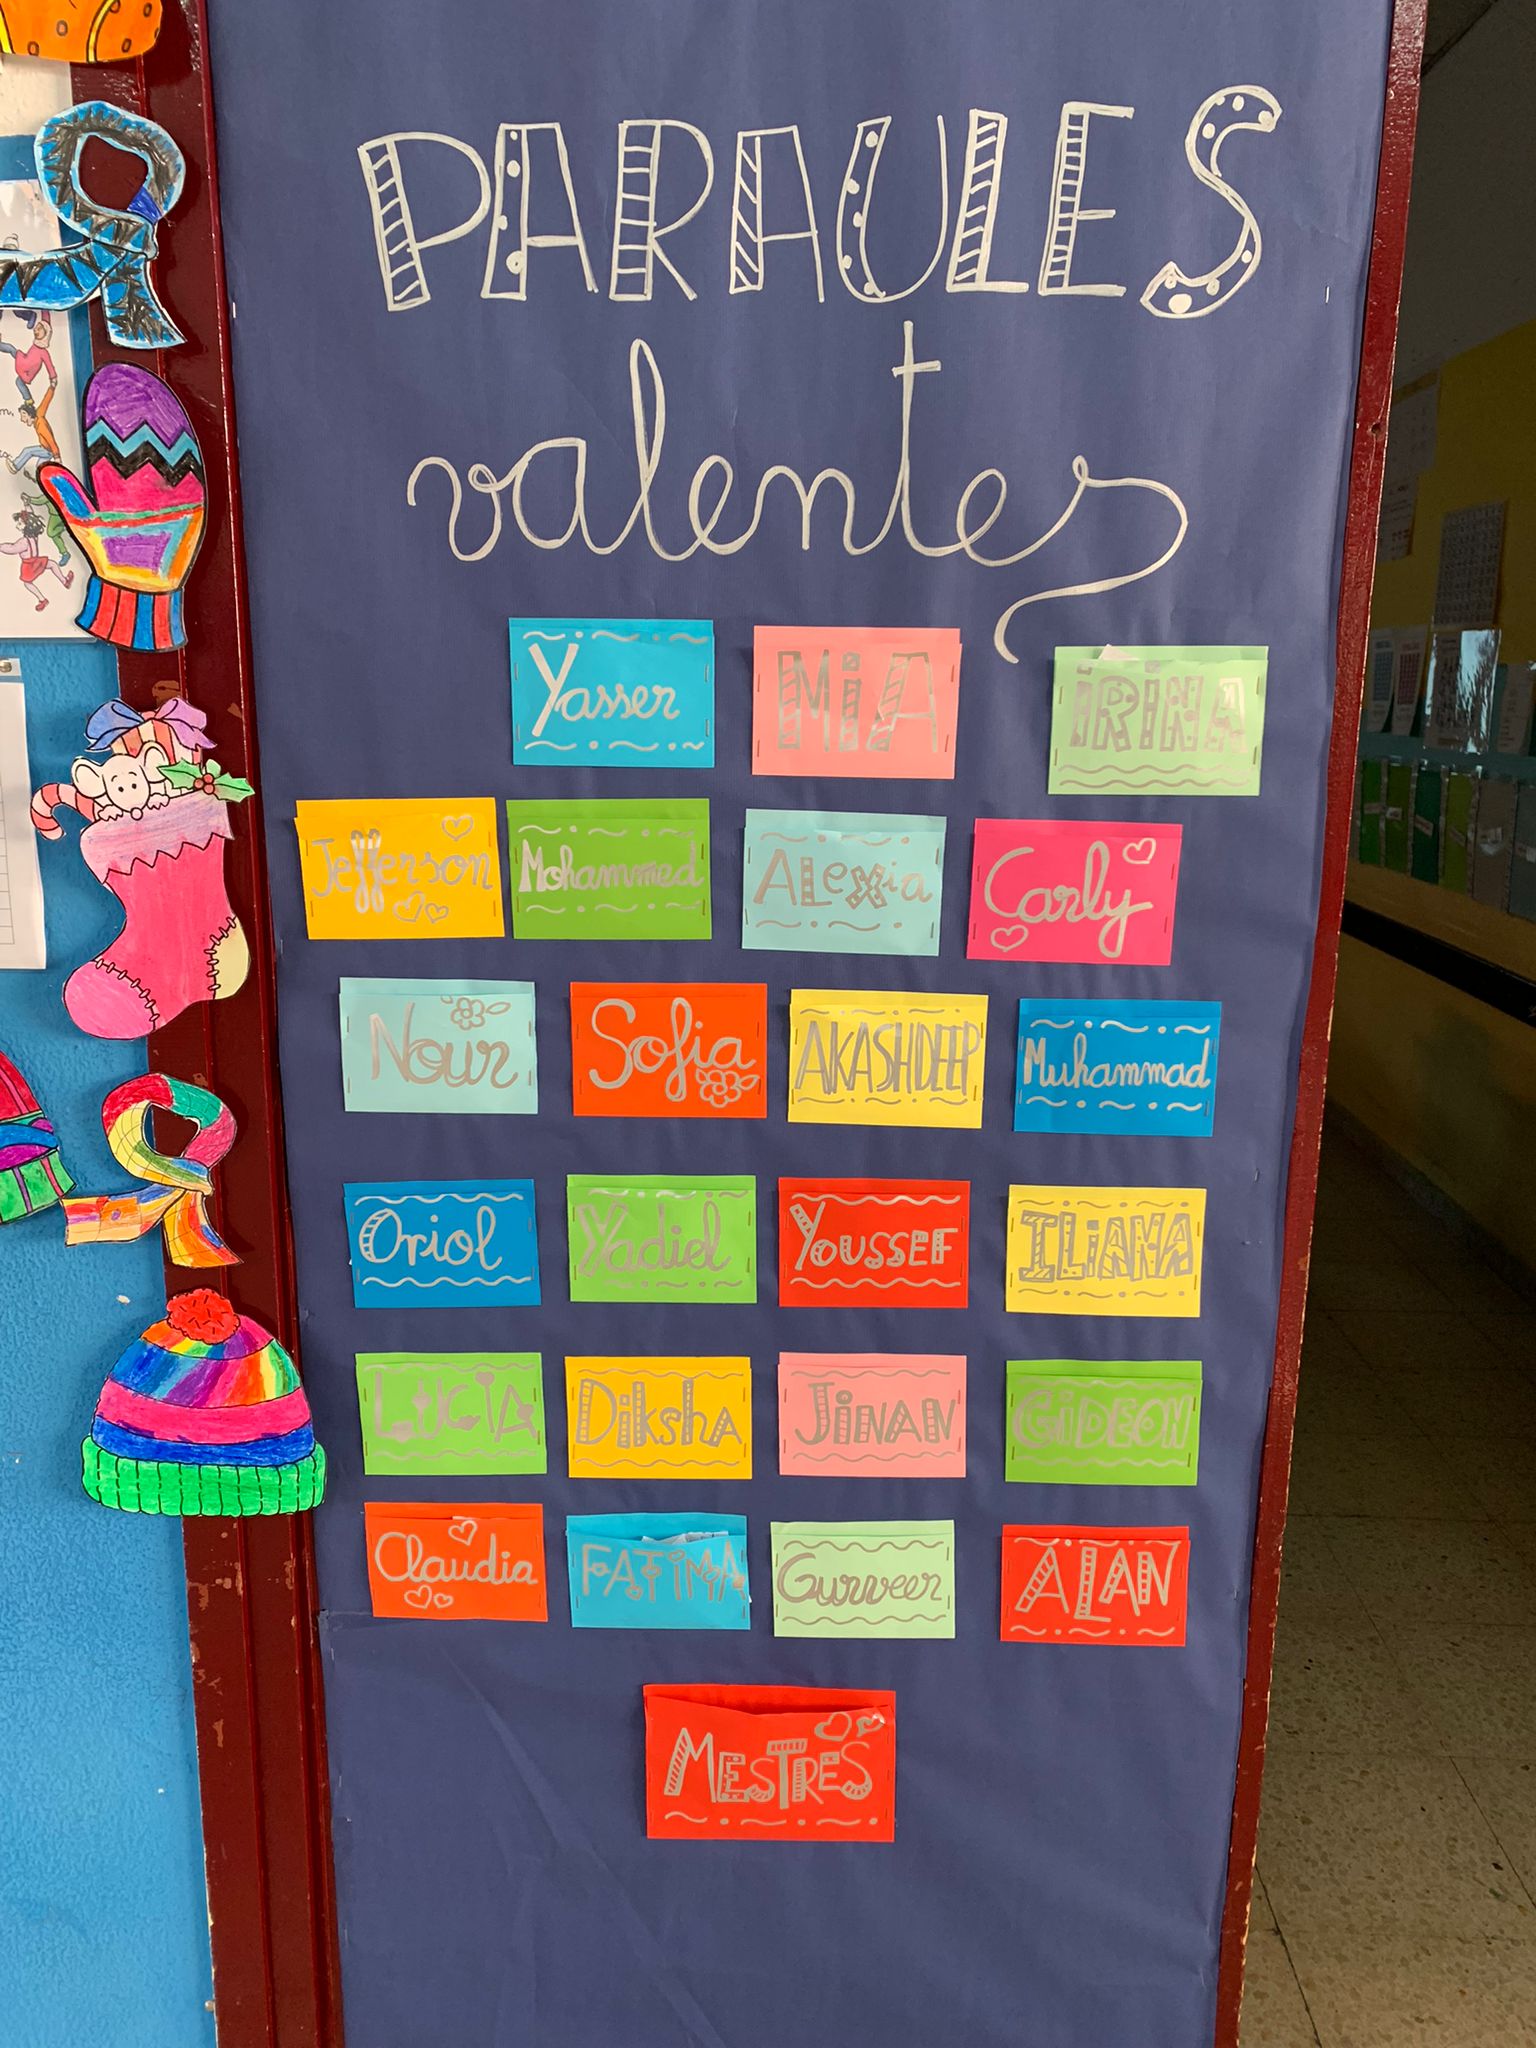 PARAULES
valentes
Yasser MiA iRiNA
Jefferson Mohammed ALexia Carly
Nour Sofia AKASHDEEP Muhammad
Oriol Yadiel YOUSSEF ILiANA
LUCIA DiKshA JiNAN GiDEON
Claudia FATiMA Gurveer ALAN
MESTRES